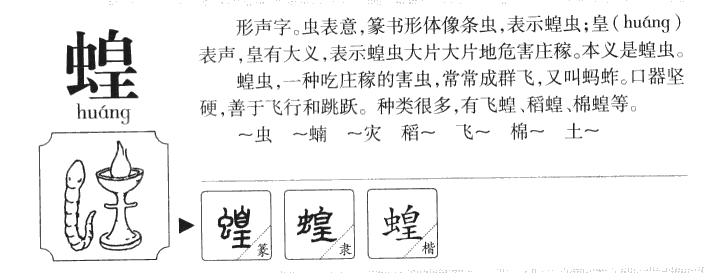 蝗
huáng
形声字。虫表意，篆书形体像条虫，表示蝗虫；皇（huáng）
表声，皇有大义，表示蝗虫大片大片地危害庄稼。本义是蝗虫。
蝗虫，一种吃庄稼的害虫，常常成群飞，又叫蚂蚱。口器坚
硬，善于飞行和跳跃。种类很多，有飞蝗、稻蝗、棉蝗等。
～虫 ～蝻 ～灾 稻～ 飞～ 棉～ 土～
蝗 篆 蝗 隶 蝗 楷